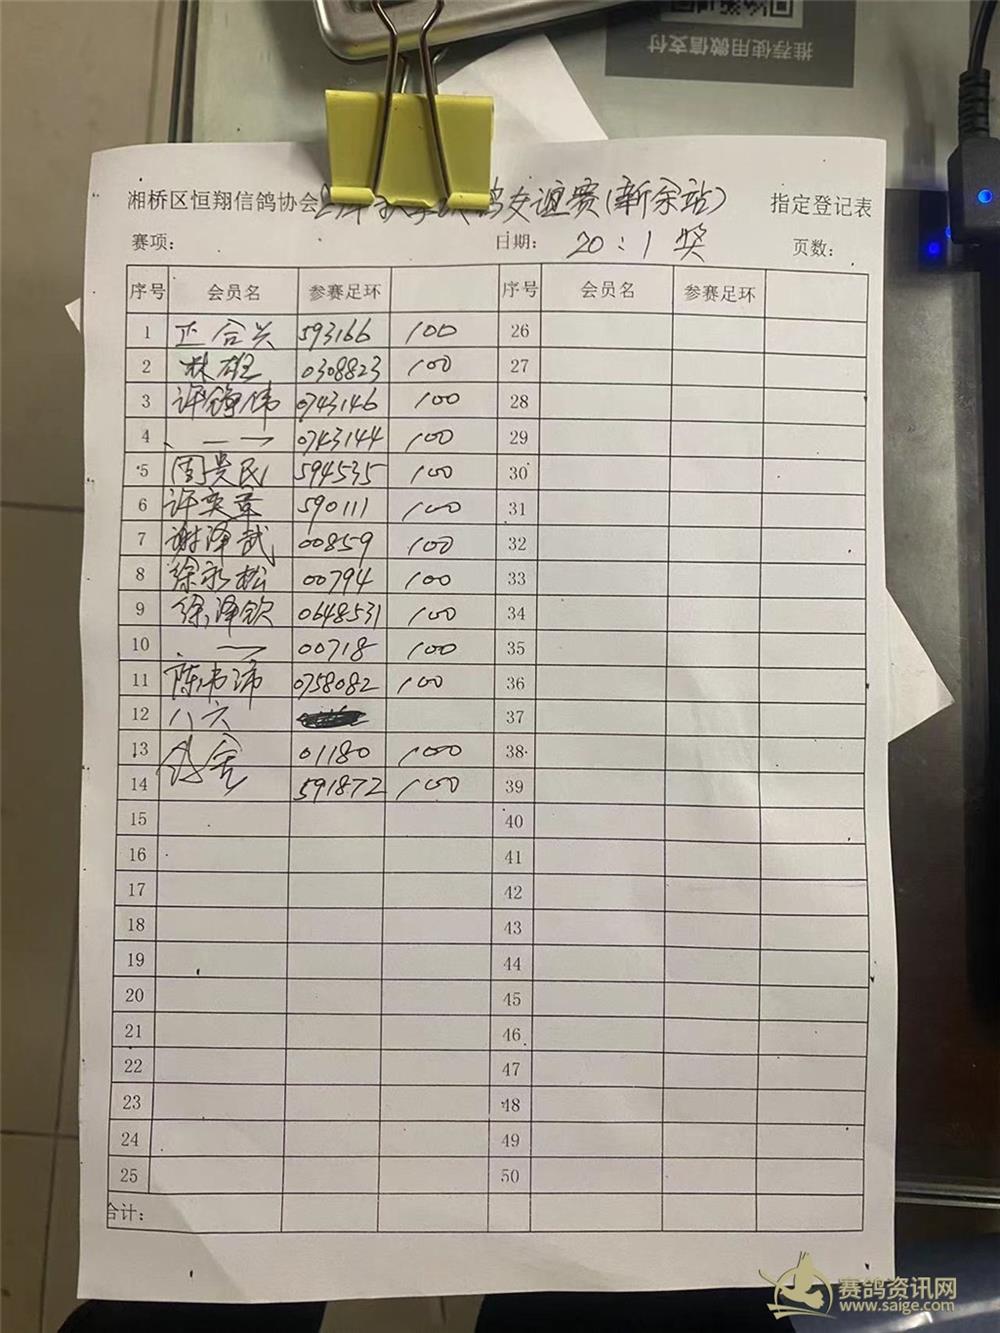 推荐使用微信支付
湘桥区恒翔信鸽协会 鸽友谊赛(新余站) 指定登记表
赛项: 日期: 20:1奖 页数:
序号 会员名 参赛足环 序号 会员名 参赛足环
1 正合兴 593166 100 26
2 林雄 0308823 100 27
3 许锦伟 0743146 100 28
4 、一一 0743144 100 29
5 周贵民 594535 100 30
6 许奕章 590111 100 31
7 谢泽武 00859 100 32
8 徐永松 00794 100 33
9 徐泽钦 0648531 100 34
10 、一 00718 100 35
11 陈伟沛 0758082 100 36
12 八六 37
13 01180 100 38
14 591872 100 39
15 40
16 41
17 42
18 43
19 44
20 45
21 46
22 47
23 48
24 49
25 50
合计:
赛鸽资讯网
www.saige.com